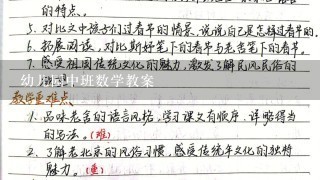 的特点。
5. 对比文中孩子们过春节的情景,说说自己是怎样过春节的。
6. 拓展阅读,对比斯妤笔下的春节与老舍笔下的春节。
7. 感受祖国传统文化的魅力,激发了解民风民俗的
幼儿园中班数学教案
教学重难点
1. 品味老舍的语言风格,学习课文有顺序、详略得当
的写法。(难)
2. 了解老北京的风俗习惯,感受传统年文化的独特
魅力。(重)